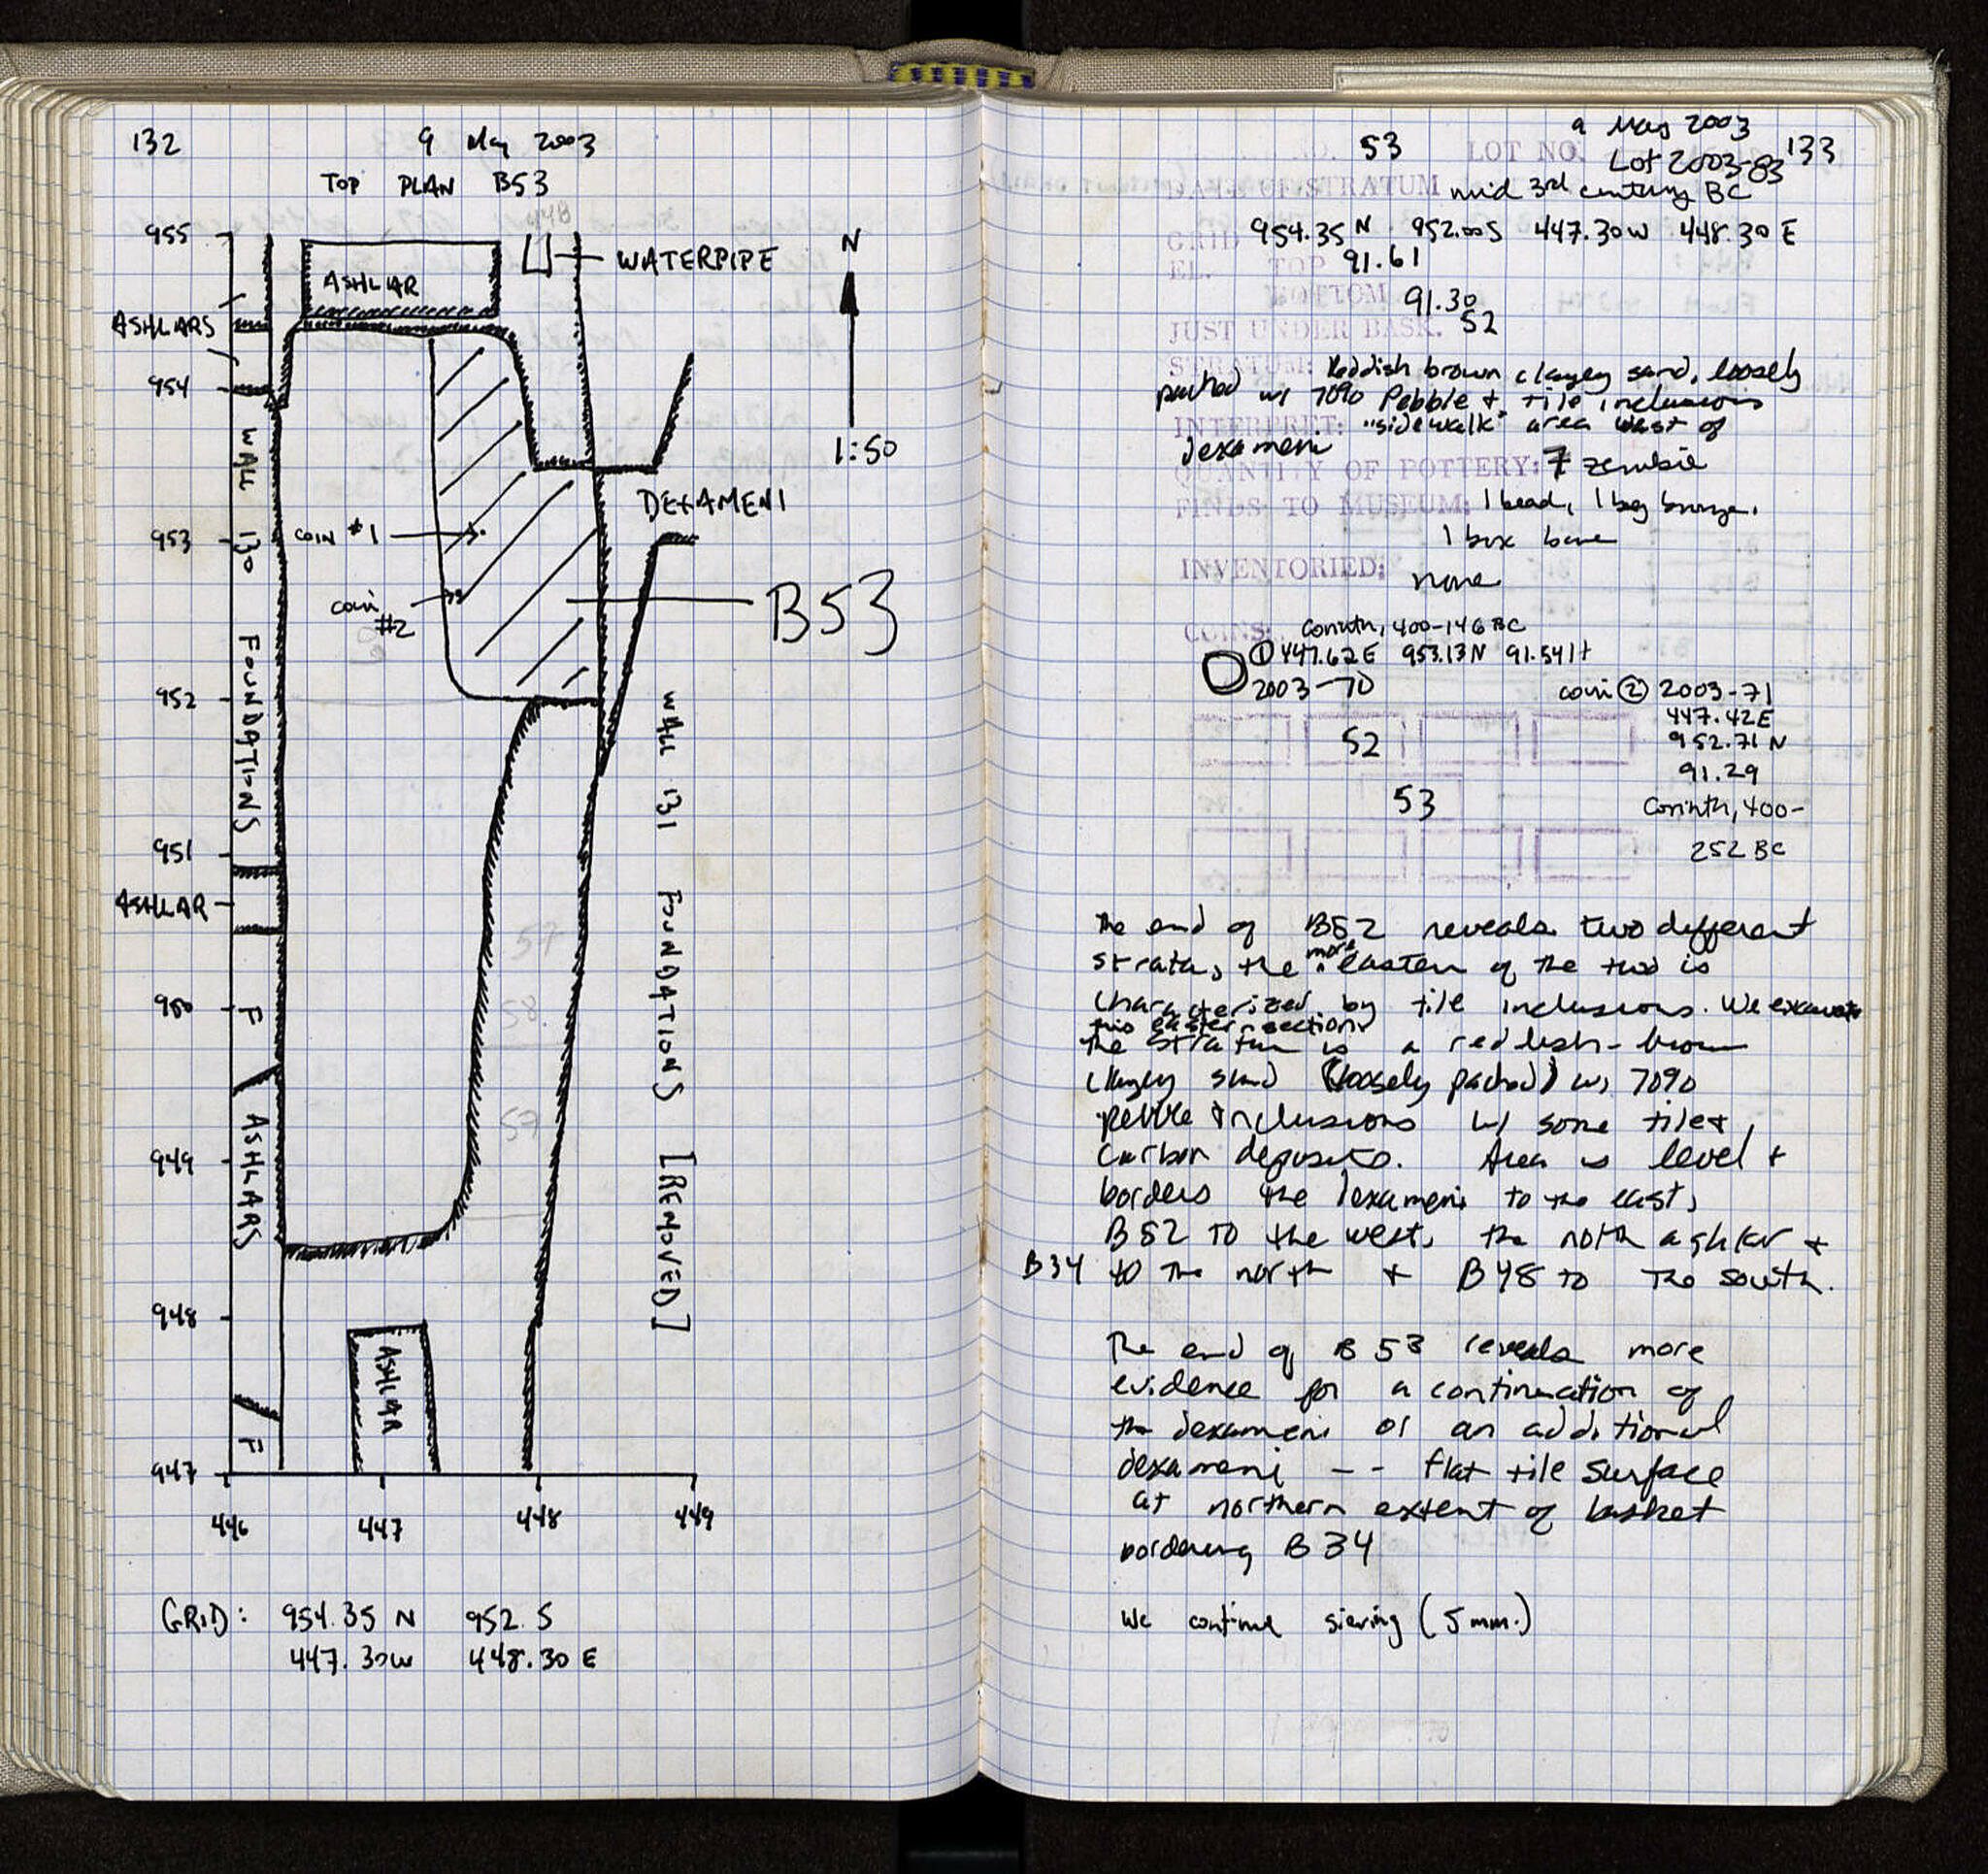 132
9 May 2003
TOP PLAN B53
448
955
ASHLAR
WATERPIPE
N
ASHLARS
954
1:50
WALL 130 FOUNDATIONS
DEXAMENI
953
COIN #1
coin #2
B53
952
WALL 131 FOUNDATIONS [REMOVED]
951
ASHLAR
57
950
F
58
949
57
ASHLARS
948
ASHLAR
F
947
446 447 448 449
GRID: 954.35 N 952.S
447.30W 448.30 E
9 May 2003
133
53 LOT NO. Lot 2003-83
DATE OF STRATUM mid 3rd century BC
GRID 954.35 N 952.00S 447.30W 448.30 E
EL. TOP 91.61
BOTTOM 91.30
JUST UNDER BASK. 52
STRATUM: Reddish brown clayey sand, loosely
packed w/ 70% Pebble + tile inclusions
INTERPRET: "sidewalk" area west of
dexameni
QUANTITY OF POTTERY: 7 zembie
FINDS TO MUSEUM: 1 bead, 1 bag bronze,
1 box bone
INVENTORIED: none
COINS: Corinth, 400-146 BC
① 447.62E 953.13N 91.541t
2003-70
coin ② 2003-71
447.42E
952.71 N
91.29
Corinth, 400-
252 BC
52
53
The end of B52 reveals two different
strata, the more eastern of the two is
characterized by tile inclusions. We excavate
this eastern section.
The stratum is a reddish-brown
clayey sand (loosely packed) w/ 70%
pebble inclusions w/ some tile +
carbon deposits. Area is level +
borders the dexameni to the east,
B52 to the west, the north ashlar +
B34 to the north + B48 to the south.
The end of B53 reveals more
evidence for a continuation of
the dexameni or an additional
dexameni -- flat tile surface
at northern extent of basket
bordering B34
We continue sieving (5mm.)